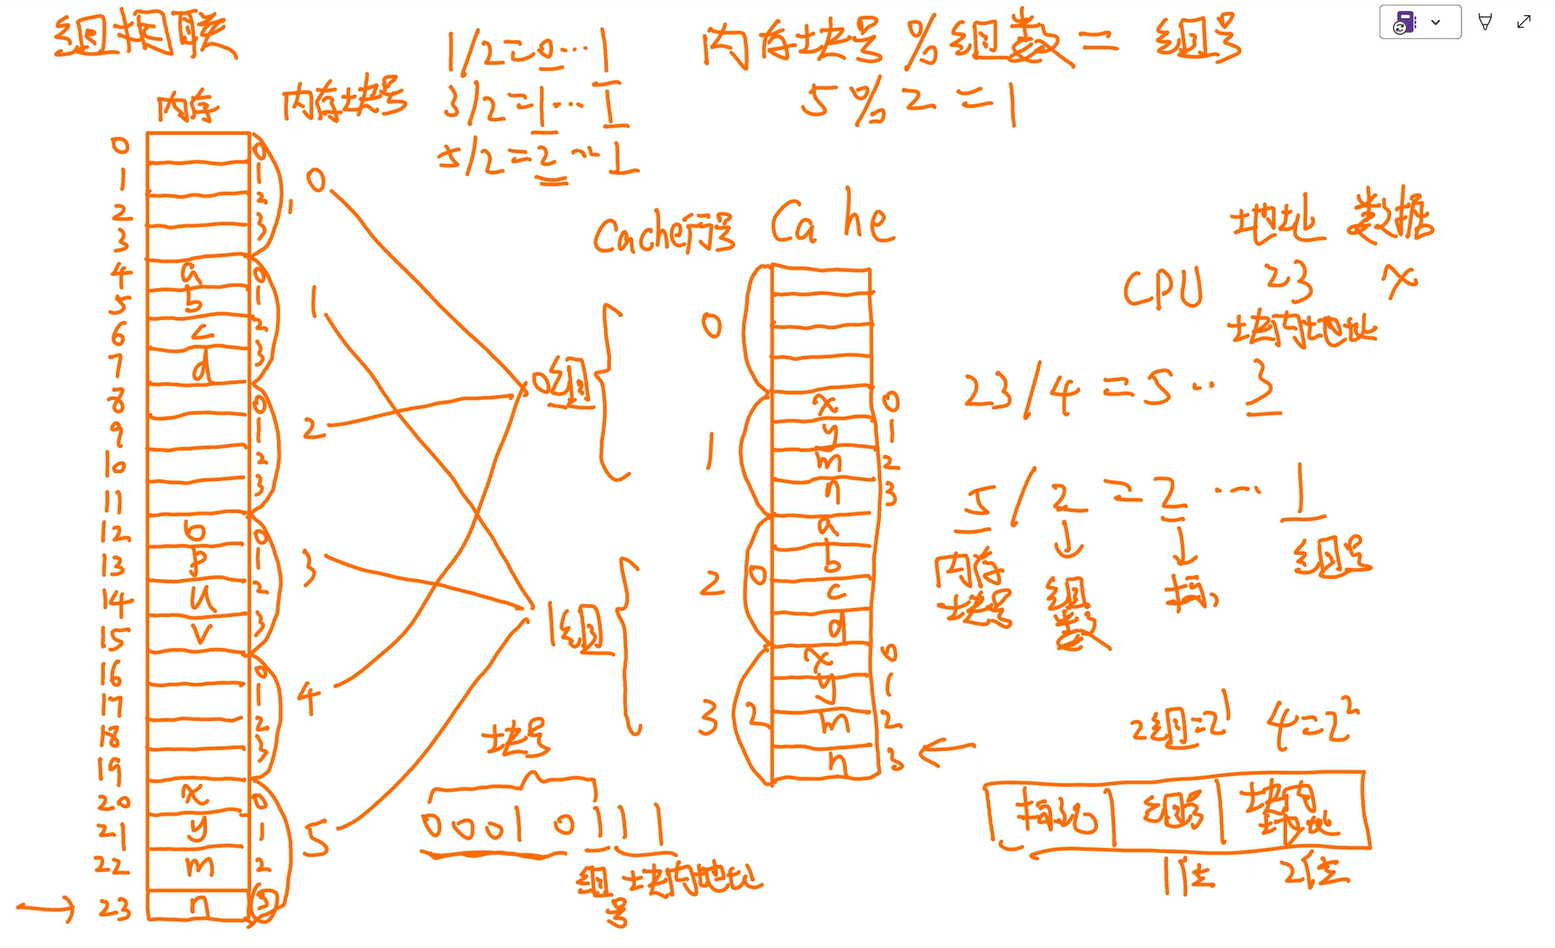 组相联
1/2=0…1
3/2=1…1
5/2=2…1
内存块号 % 组数 = 组号
5 % 2 = 1
内存 内存块号
0 0
1 1
2 2
3 3
0
4 a 0
5 b 1
6 c 2
7 d 3
1
8 0
9 1
10 2
11 3
2
12 0
13 p 1
14 u 2
15 v 3
3
16 0
17 1
18 2
19 3
4
20 x 0
21 y 1
22 m 2
23 n 3
5
0组
1组
块号
0001 0111
组号 块内地址
Cache行号 Cache
0
1
x 0
y 1
m 2
n 3
2 0
a
b
c
d
3 2
x 0
y 1
m 2
n 3
地址 数据
CPU 23 x
块内地址
23/4=5…3
5/2=2…1
内存块号 组数 组号
2组=2¹ 4=2²
标记 组号 块内地址
1位 2位